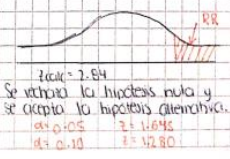 RR
Zcalc = 2.84
Se rechaza la hipótesis nula y
se acepta la hipótesis alternativa.
α= 0.05 z = 1.645
α= 0.10 z = 1.280